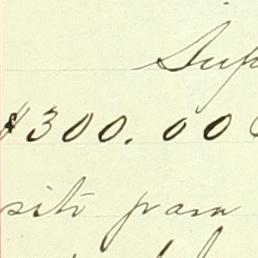 Sup
$300.00
sito para